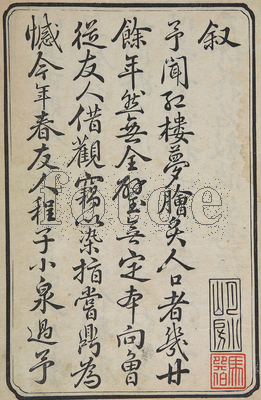 叙
予聞紅樓夢膾炙人口者幾廿
餘年然無全璧無定本向曾
從友人借觀竊以染指嘗鼎為
憾今年春友人程子小泉過予
fotoe